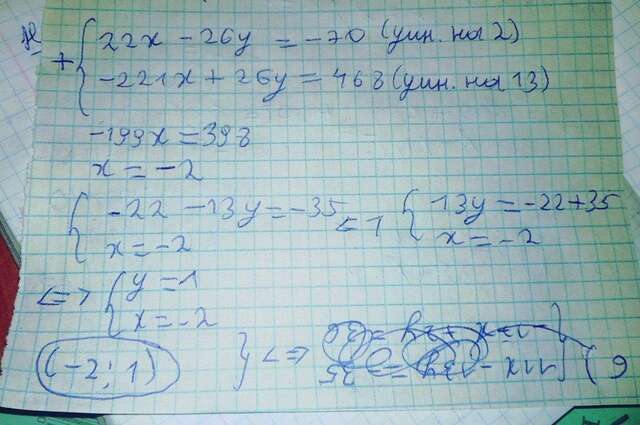 22x - 26y = -70 (умн. на 2)
+
-221x + 26y = 468 (умн. на 13)
-199x = 398
x = -2
{ -22 - 13y = -35
x = -2
{ 13y = -22+35
x = -2
<=> { y = 1
x = -2
(-2; 1)
<=>